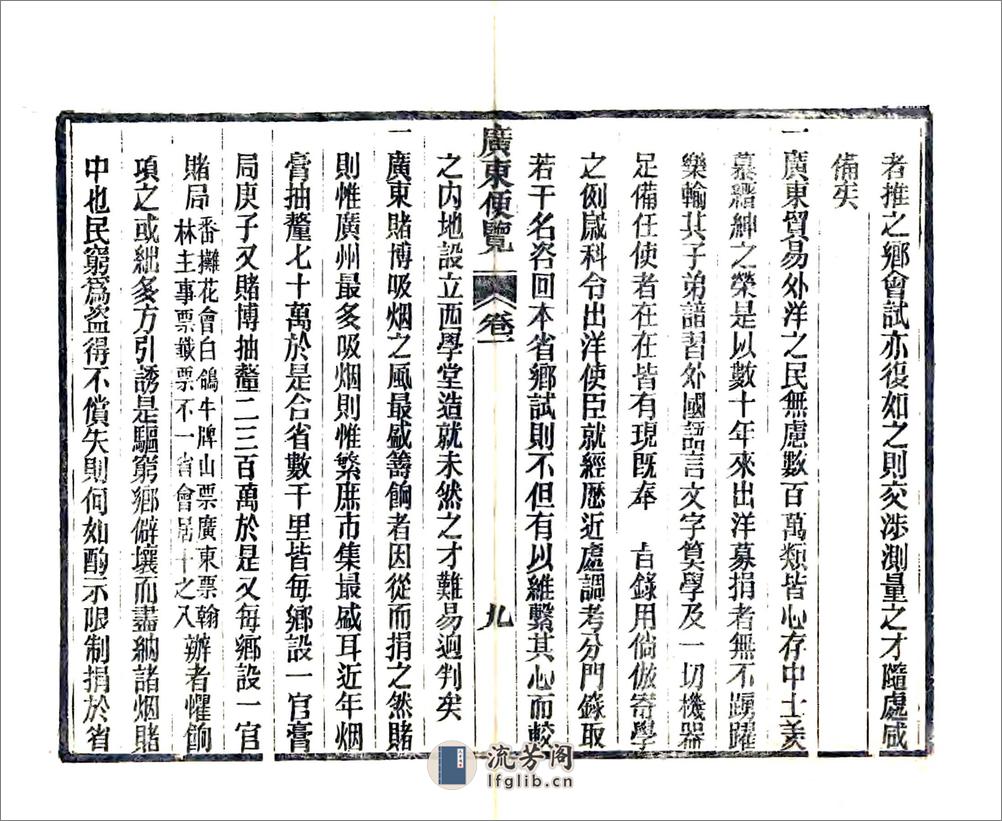 者推之鄉會試亦復如之則交涉測量之才隨處咸
備矣
一廣東貿易外洋之民無慮數百萬類皆心存中土美
慕縉紳之榮是以數十年來出洋募捐者無不踴躍
樂輸其子弟諳習外國語言文字算學及一切機器
足備任使者在在皆有現既奉　旨錄用倘倣寄學
之例歲科令出洋使臣就經歷近處調考分門錄取
若干名咨回本省鄉試則不但有以維繫其心而較
廣東便覽 卷一 九
之內地設立西學堂造就未然之才難易迥判矣
一廣東賭博吸烟之風最盛籌餉者因從而捐之然賭
則惟廣州最多吸烟則惟繁庶市集最盛耳近年烟
膏抽釐七十萬於是合省數千里皆每鄉設一官膏
局庚子又賭博抽釐二三百萬於是又每鄉設一官
賭局番攤花會白鴿牛牌山票廣東票翰林主事票籤票不一省會居十之八辦者懼餉
項之或絀多方引誘是驅窮鄉僻壤而盡納諸烟賭
中也民窮為盜得不償失則何如酌示限制捐於省
流芳阁
lfglib.cn